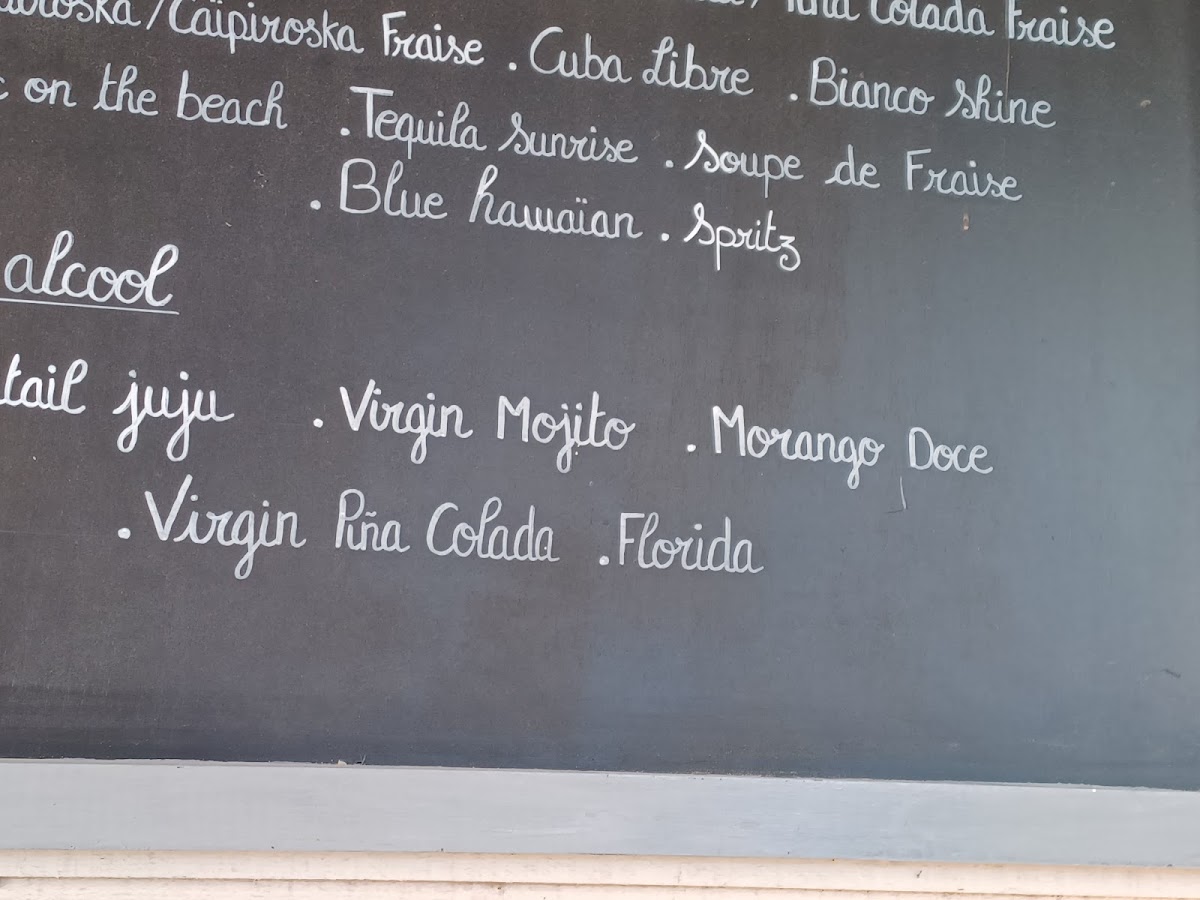 /Caïpiroska Fraise . Cuba Libre . Bianco Shine
Colada Fraise
on the beach . Tequila Sunrise . Soupe de Fraise
. Blue hawaïan . Spritz
alcool
tail juju . Virgin Mojito . Morango Doce
. Virgin Piña Colada . Florida